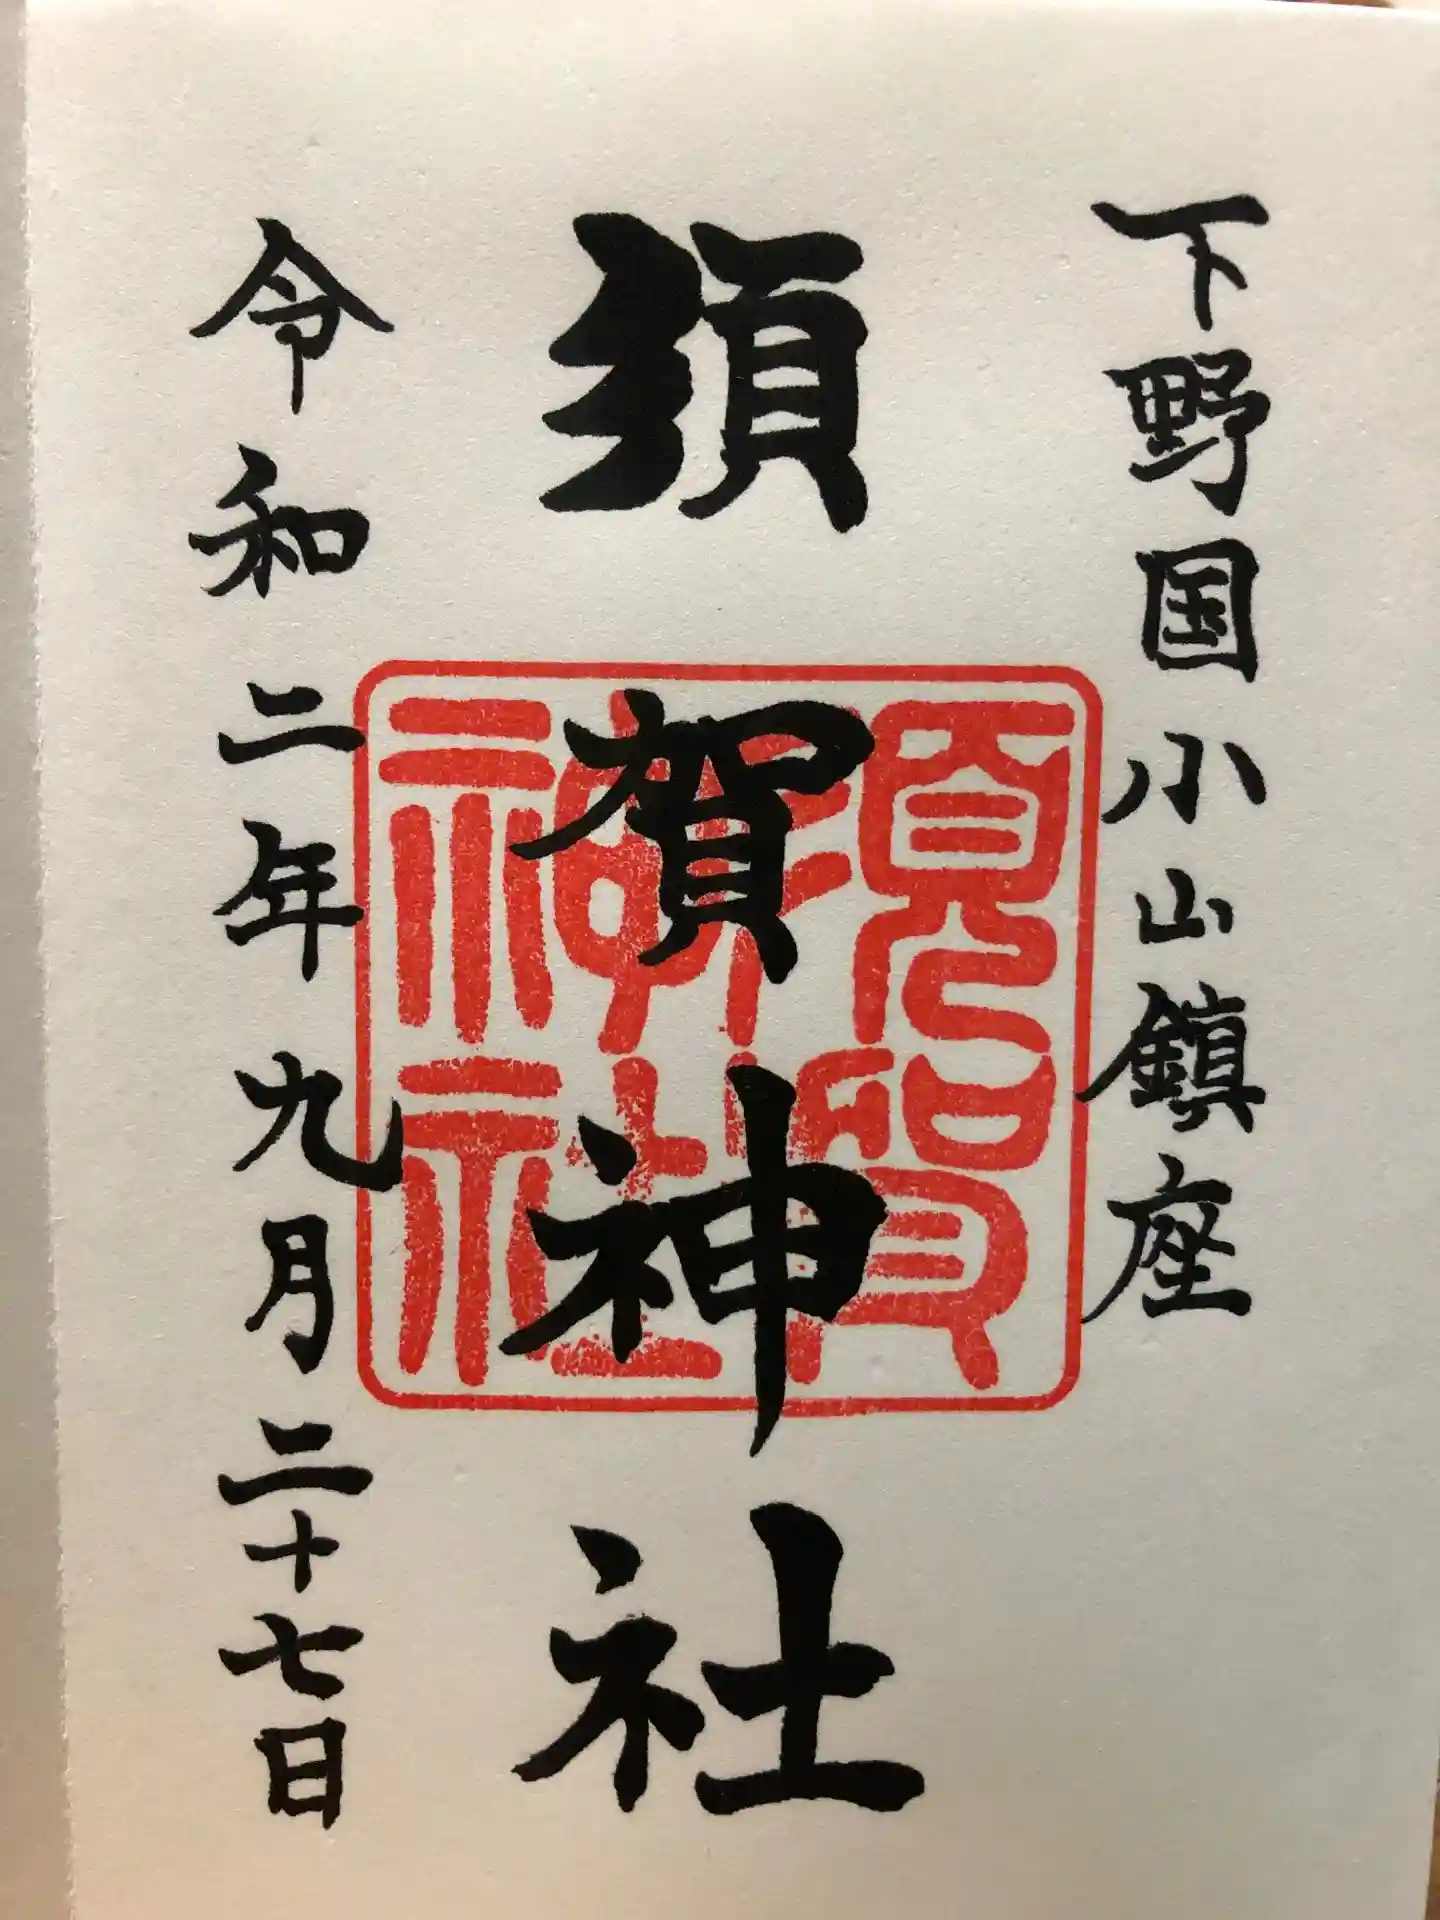 下野国小山鎮座
須賀神社
須賀
神社
令和二年九月二十七日